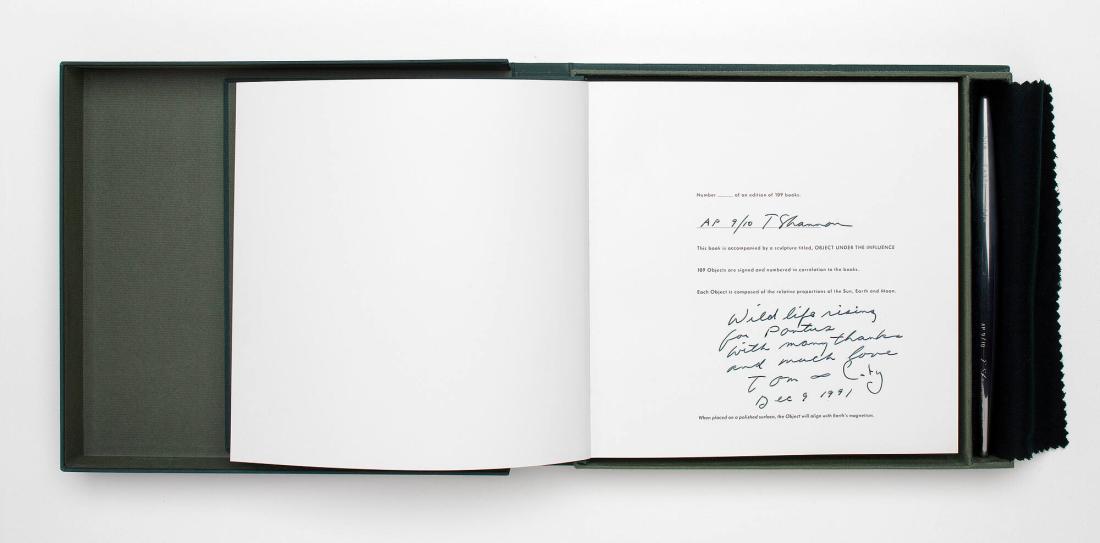 Number ____ of an edition of 189 books.
AP 9/10 T Shannon
This book is accompanied by a sculpture titled, OBJECT UNDER THE INFLUENCE
189 Objects are signed and numbered in correlation to the books.
Each Object is composed of the relative proportions of the Sun, Earth and Moon.
Wild life rising
for Pontus
with many thanks
and much love
Tom ∞
Dec 9 1991
When placed on a polished surface, the Object will align with Earth's magnetism.
AP 9/10